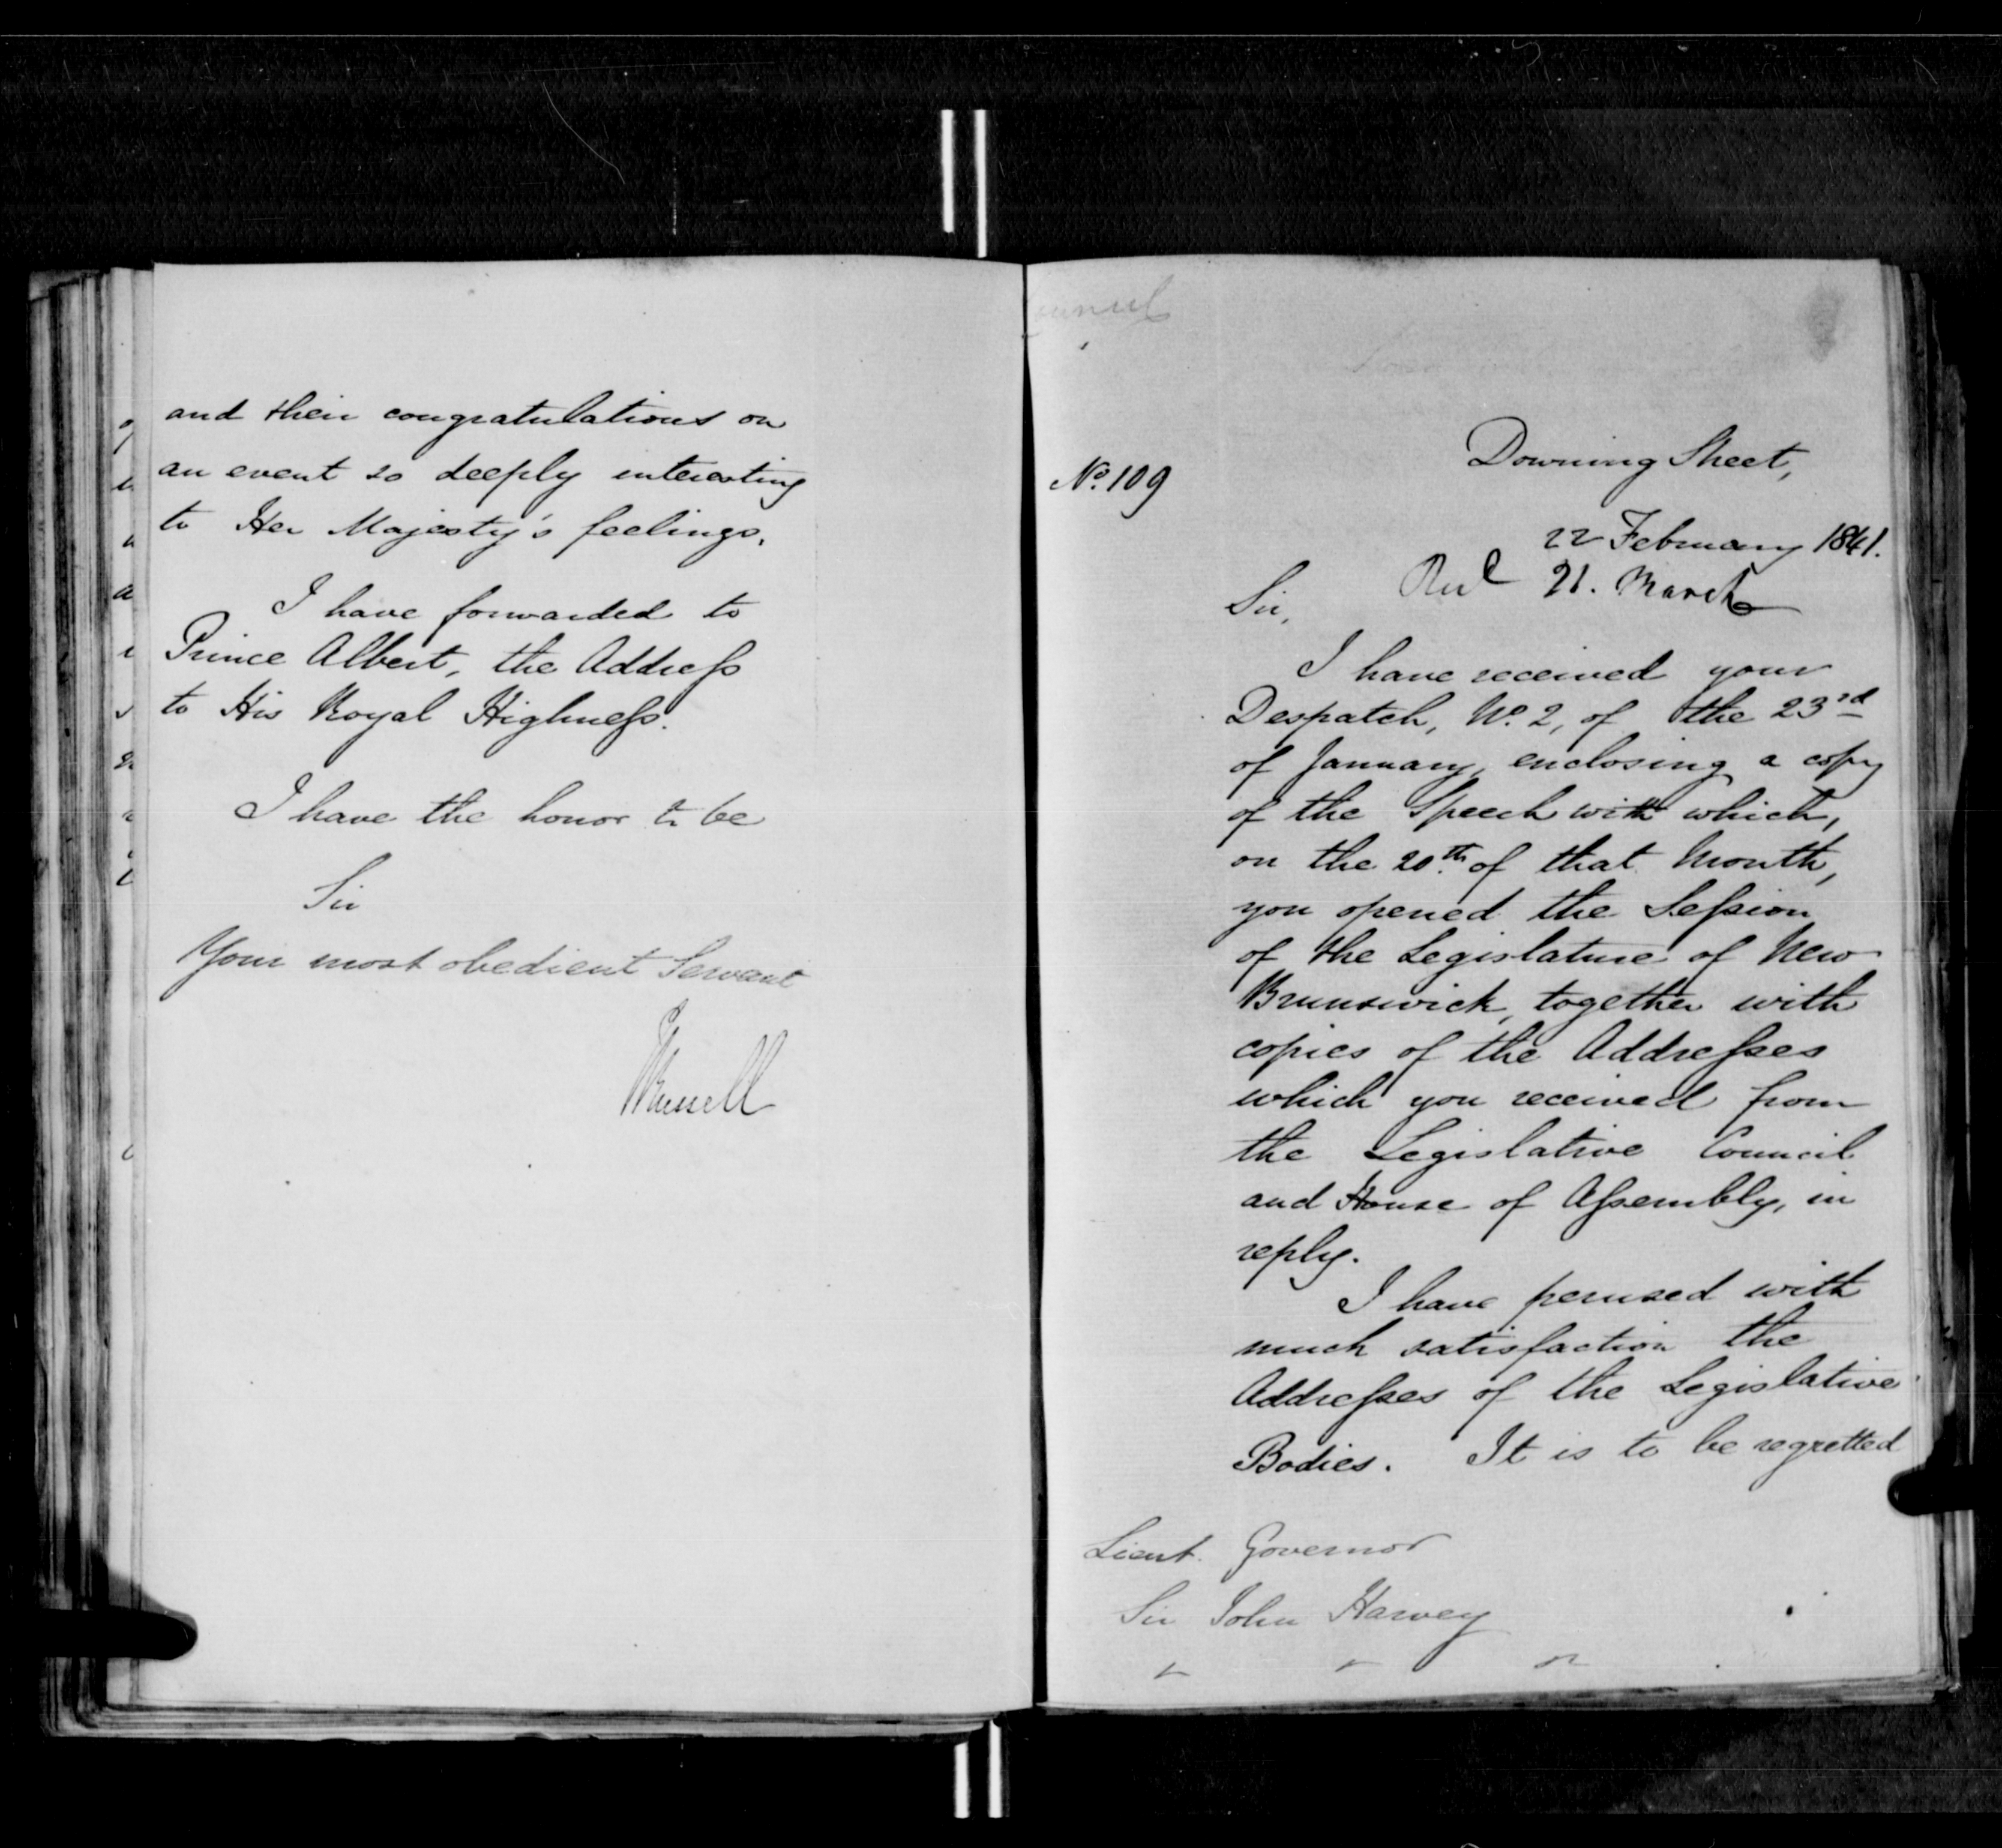 and their congratulations on
an event so deeply interesting
to Her Majesty's feelings.
I have forwarded to
Prince Albert, the Address
to His Royal Highness.
I have the honor to be
Sir
Your most obedient Servant
JRussell
Downing Street,
No. 109
22 February 1841.
Recd 21. March
Sir,
I have received your
Despatch, No. 2, of the 23rd
of January, enclosing a copy
of the Speech with which,
on the 20th of that Month,
you opened the Session
of the Legislature of New
Brunswick, together with
copies of the Addresses
which you received from
the Legislative Council
and House of Assembly, in
reply.
I have perused with
much satisfaction the
Addresses of the Legislative
Bodies. It is to be regretted
Lieut. Governor
Sir John Harvey